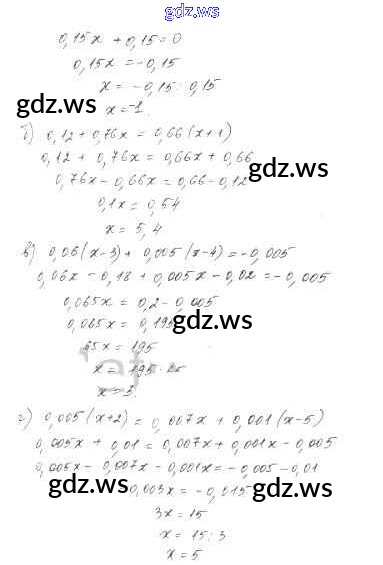 gdz.ws
0,15x + 0,15 = 0
0,15x = -0,15
x = -0,15 : 0,15
gdz.ws
x = -1.
б) 0,12 + 0,76x = 0,66(x+1)
0,12 + 0,76x = 0,66x + 0,66
gdz.ws
0,76x - 0,66x = 0,66 - 0,12
0,1x = 0,54
x = 5,4
в) 0,06(x-3) + 0,005(x-4) = -0,005
0,06x - 0,18 + 0,005x - 0,02 = -0,005
0,065x = 0,2 - 0,005
0,065x = 0,195
gdz.ws
65x = 195
x = 195 : 65
x = 3.
г) 0,005(x+2) = 0,007x + 0,001(x-5)
0,005x + 0,01 = 0,007x + 0,001x - 0,005
0,005x - 0,007x - 0,001x = -0,005 - 0,01
gdz.ws
0,003x = -0,015
gdz.ws
3x = 15
x = 15 : 3
x = 5